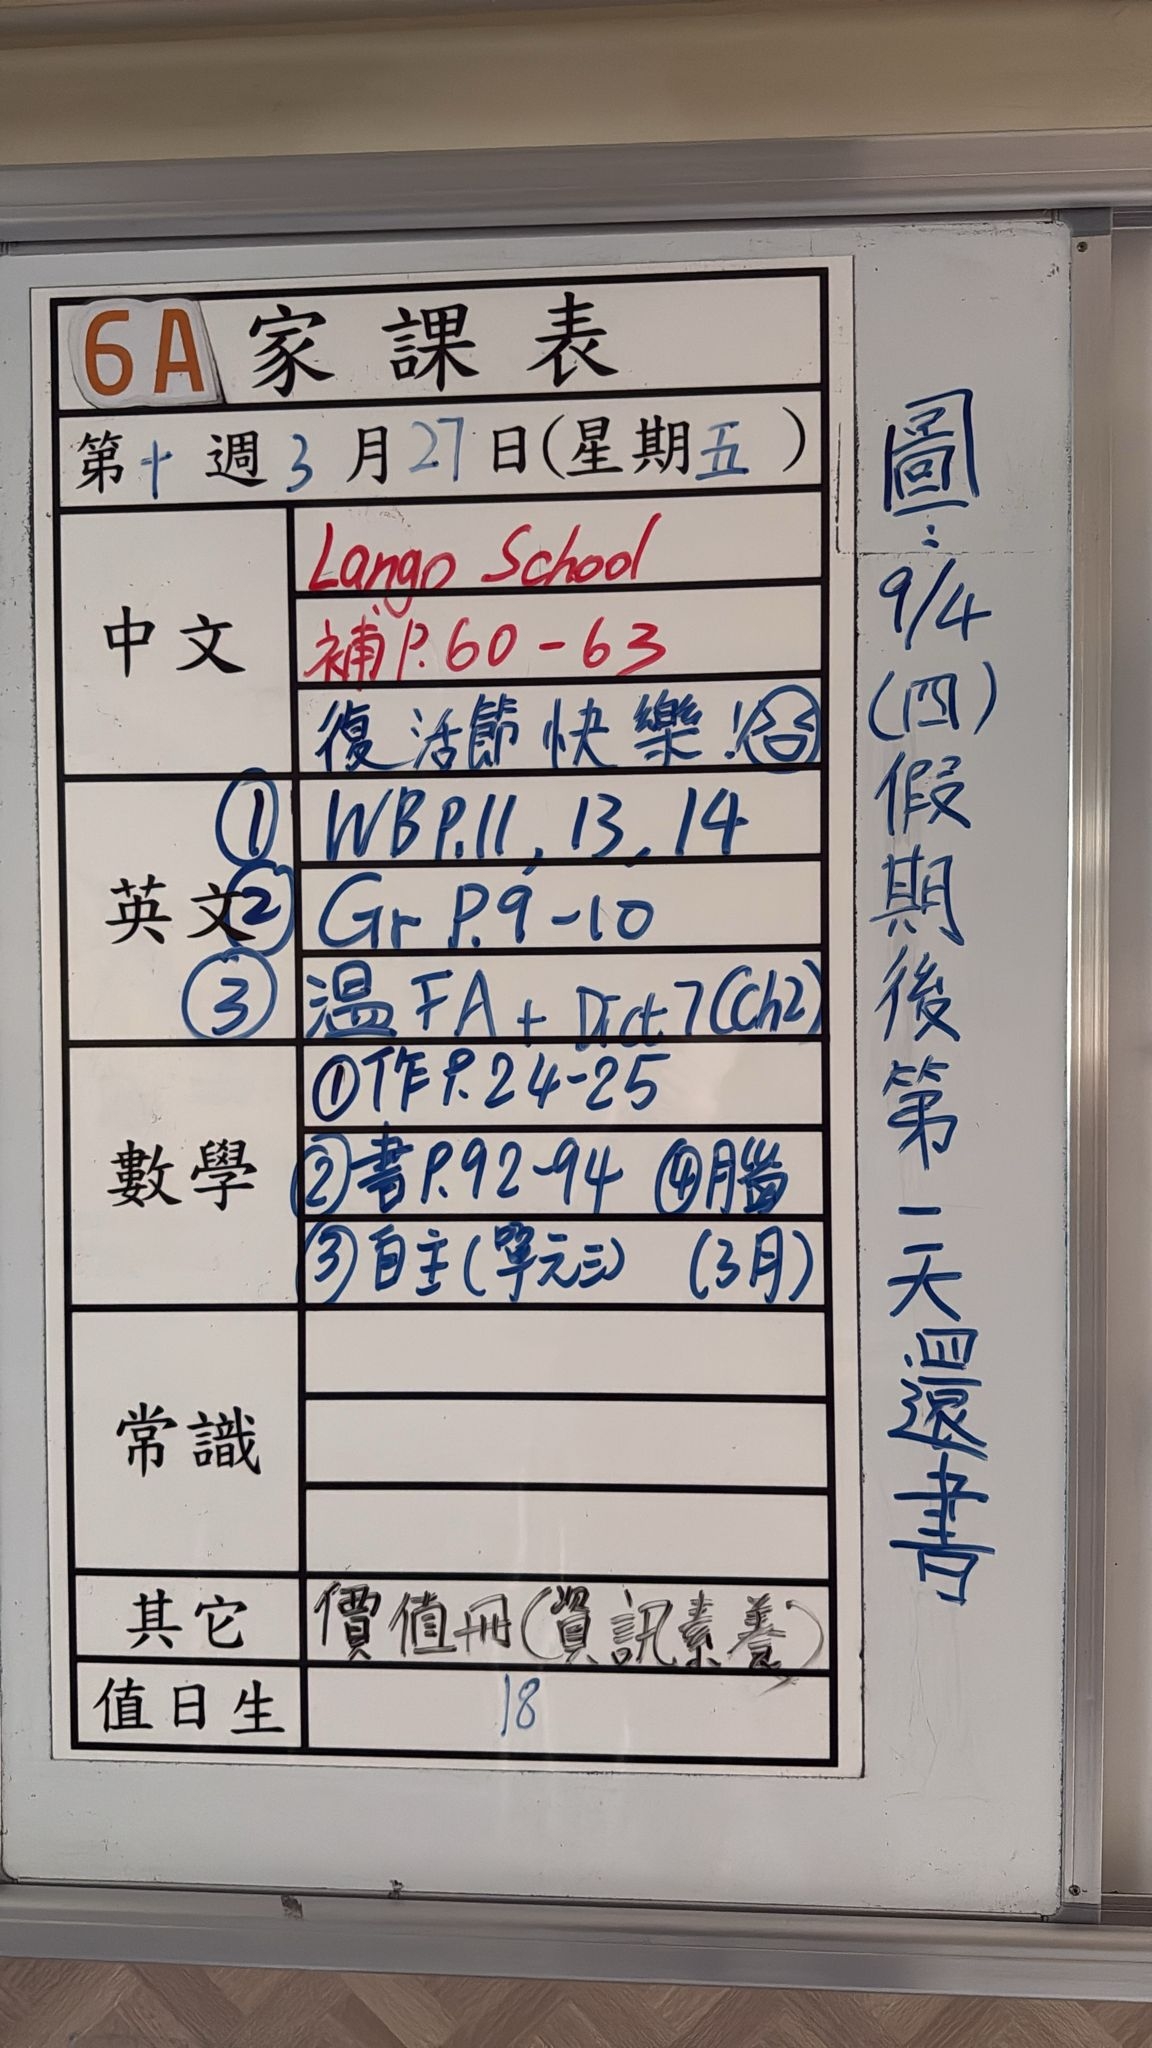 6A 家課表
第十週3月27日(星期五)
中文
Lango School
補P.60-63
復活節快樂!
英文
① WBP.11, 13, 14
② Gr P.9-10
③ 溫FA + Dict 7(Ch2)
數學
①作P.24-25
②書P.92-94 ④腦
③自主(單元三) (3月)
常識
其它
價值冊(資訊素養)
值日生
18
圖:9/4(四)假期後第一天還書